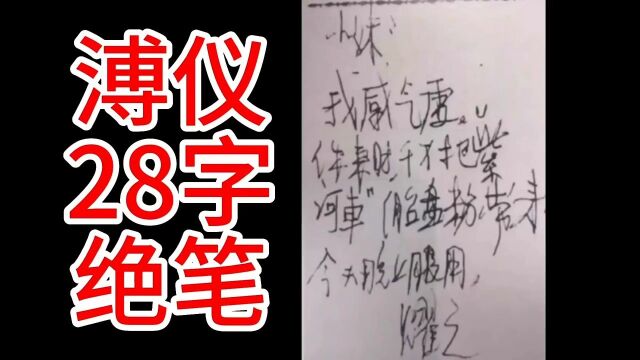 溥仪
28字
绝笔
小妹:
我感气虚。
你来时,千万把“紫
河车”(胎盘粉)带来,
今天晚上服用,
耀之